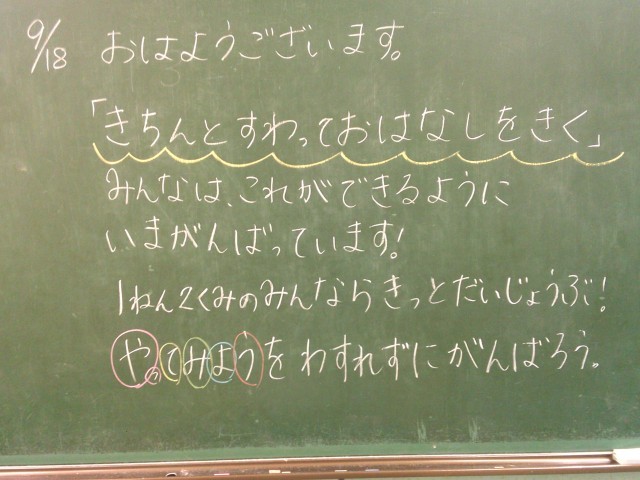 9/18 おはようございます。
「きちんとすわっておはなしをきく」
みんなは、これができるように
いまがんばっています!
1ねん2くみのみんならきっとだいじょうぶ!
やってみようをわすれずにがんばろう。